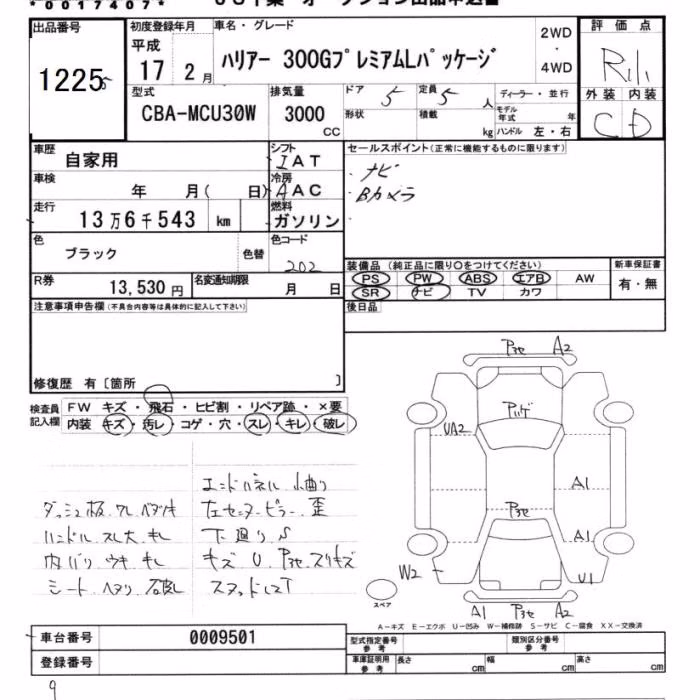 *0017407*
出品番号 初度登録年月 車名・グレード 2WD・4WD 評価点
1225 平成 17 2月 ハリアー 300GプレミアムLパッケージ
型式 CBA-MCU30W 排気量 3000 CC
ドア 5 定員 5 人 ディーラー・並行 外装 内装
形状 積載 kg モデル年式 年 ハンドル 左・右 C D
車歴 自家用 シフト IAT セールスポイント(正常に機能するものに限ります)
車検 年 月( 日) 冷房 AAC ・ナビ
・Bカメラ
走行 13万6千543 km 燃料 ガソリン
色 ブラック 色替 色コード 202
装備品(純正品に限り○をつけてください) 新車保証書
PS PW ABS エアB AW 有・無
SR ナビ TV カワ
R券 13,530円 名変通知期限 月 日
注意事項申告欄(不具合内容等は具体的に記入して下さい) 後日品
修復歴 有〔箇所 〕
検査員記入欄 FW キズ・飛石・ヒビ割・リペア跡・×要
内装 キズ・汚レ・コゲ・穴・スレ・キレ・破レ
エンドパネル 小曲り
左センターピラー 歪
ハンドル スレ大 キレ 下廻り S
内バリ ウキ キレ キズ U
A2
UA2
A1
A1
W2 U1
スペア
A1 A2
A-キズ E-エクボ U-凹み W-補修跡 S-サビ C-腐食 XX-交換済
車台番号 0009501 型式指定番号 参考 類別区分番号 参考
登録番号 車庫証明用 参考 長さ cm 幅 cm 高さ cm
9